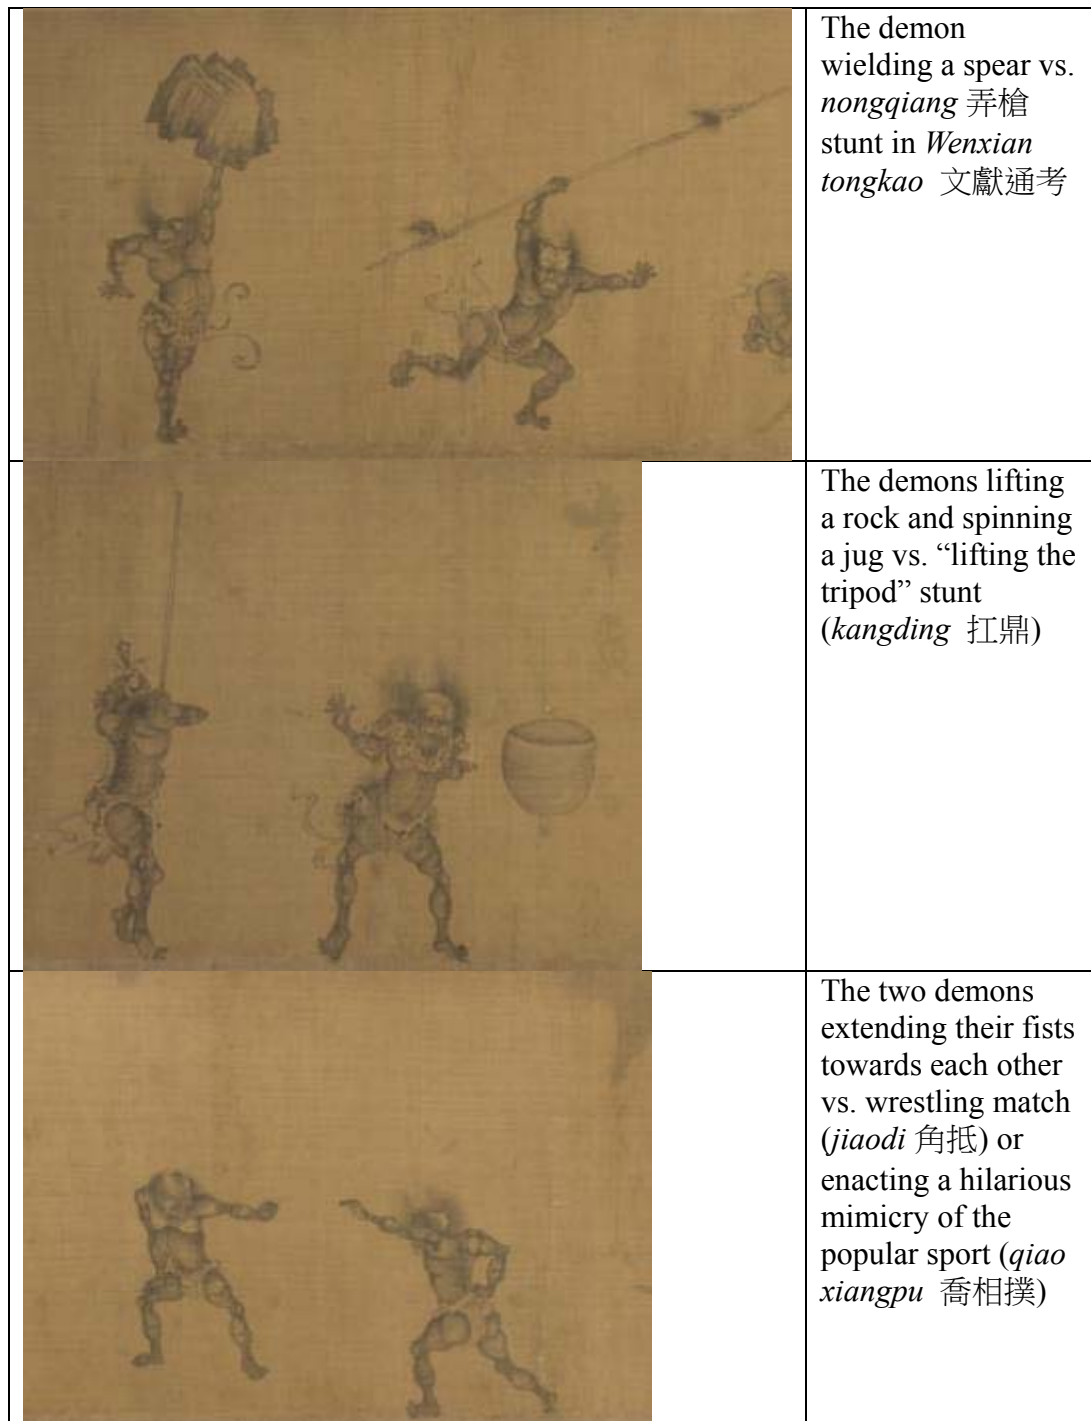 The demon
wielding a spear vs.
nongqiang 弄槍
stunt in Wenxian
tongkao 文獻通考
The demons lifting
a rock and spinning
a jug vs. “lifting the
tripod” stunt
(kangding 扛鼎)
The two demons
extending their fists
towards each other
vs. wrestling match
(jiaodi 角抵) or
enacting a hilarious
mimicry of the
popular sport (qiao
xiangpu 喬相撲)